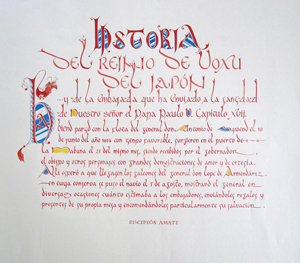 HISTORIA
DEL REINO DE VOXU
DEL JAPÓN
y de la Embajada que ha enviado a la santidad
de Nuestro señor el Papa Paulo V. Capítulo XVII
partido con la flota del general don Antonio de Oquendo el 10
de junio del año con tiempo favorable, surgieron en el puerto de
la Habana el 23 del mismo mes, siendo recibidos por el gobernador
el obispo y otros personajes con grandes demostraciones de amor y de cortesía.
Allí esperó a que llegasen los galeones del general don Lope de Armendáriz
en cuya conserva se puso el navío el 7 de agosto, mostrando el general en
diversas ocasiones cuánto estimaba a los embajadores, enviándoles regalos y
presentes de su propia mesa y encomendándoles particularmente su salvación.
ESCIPIÓN AMATI